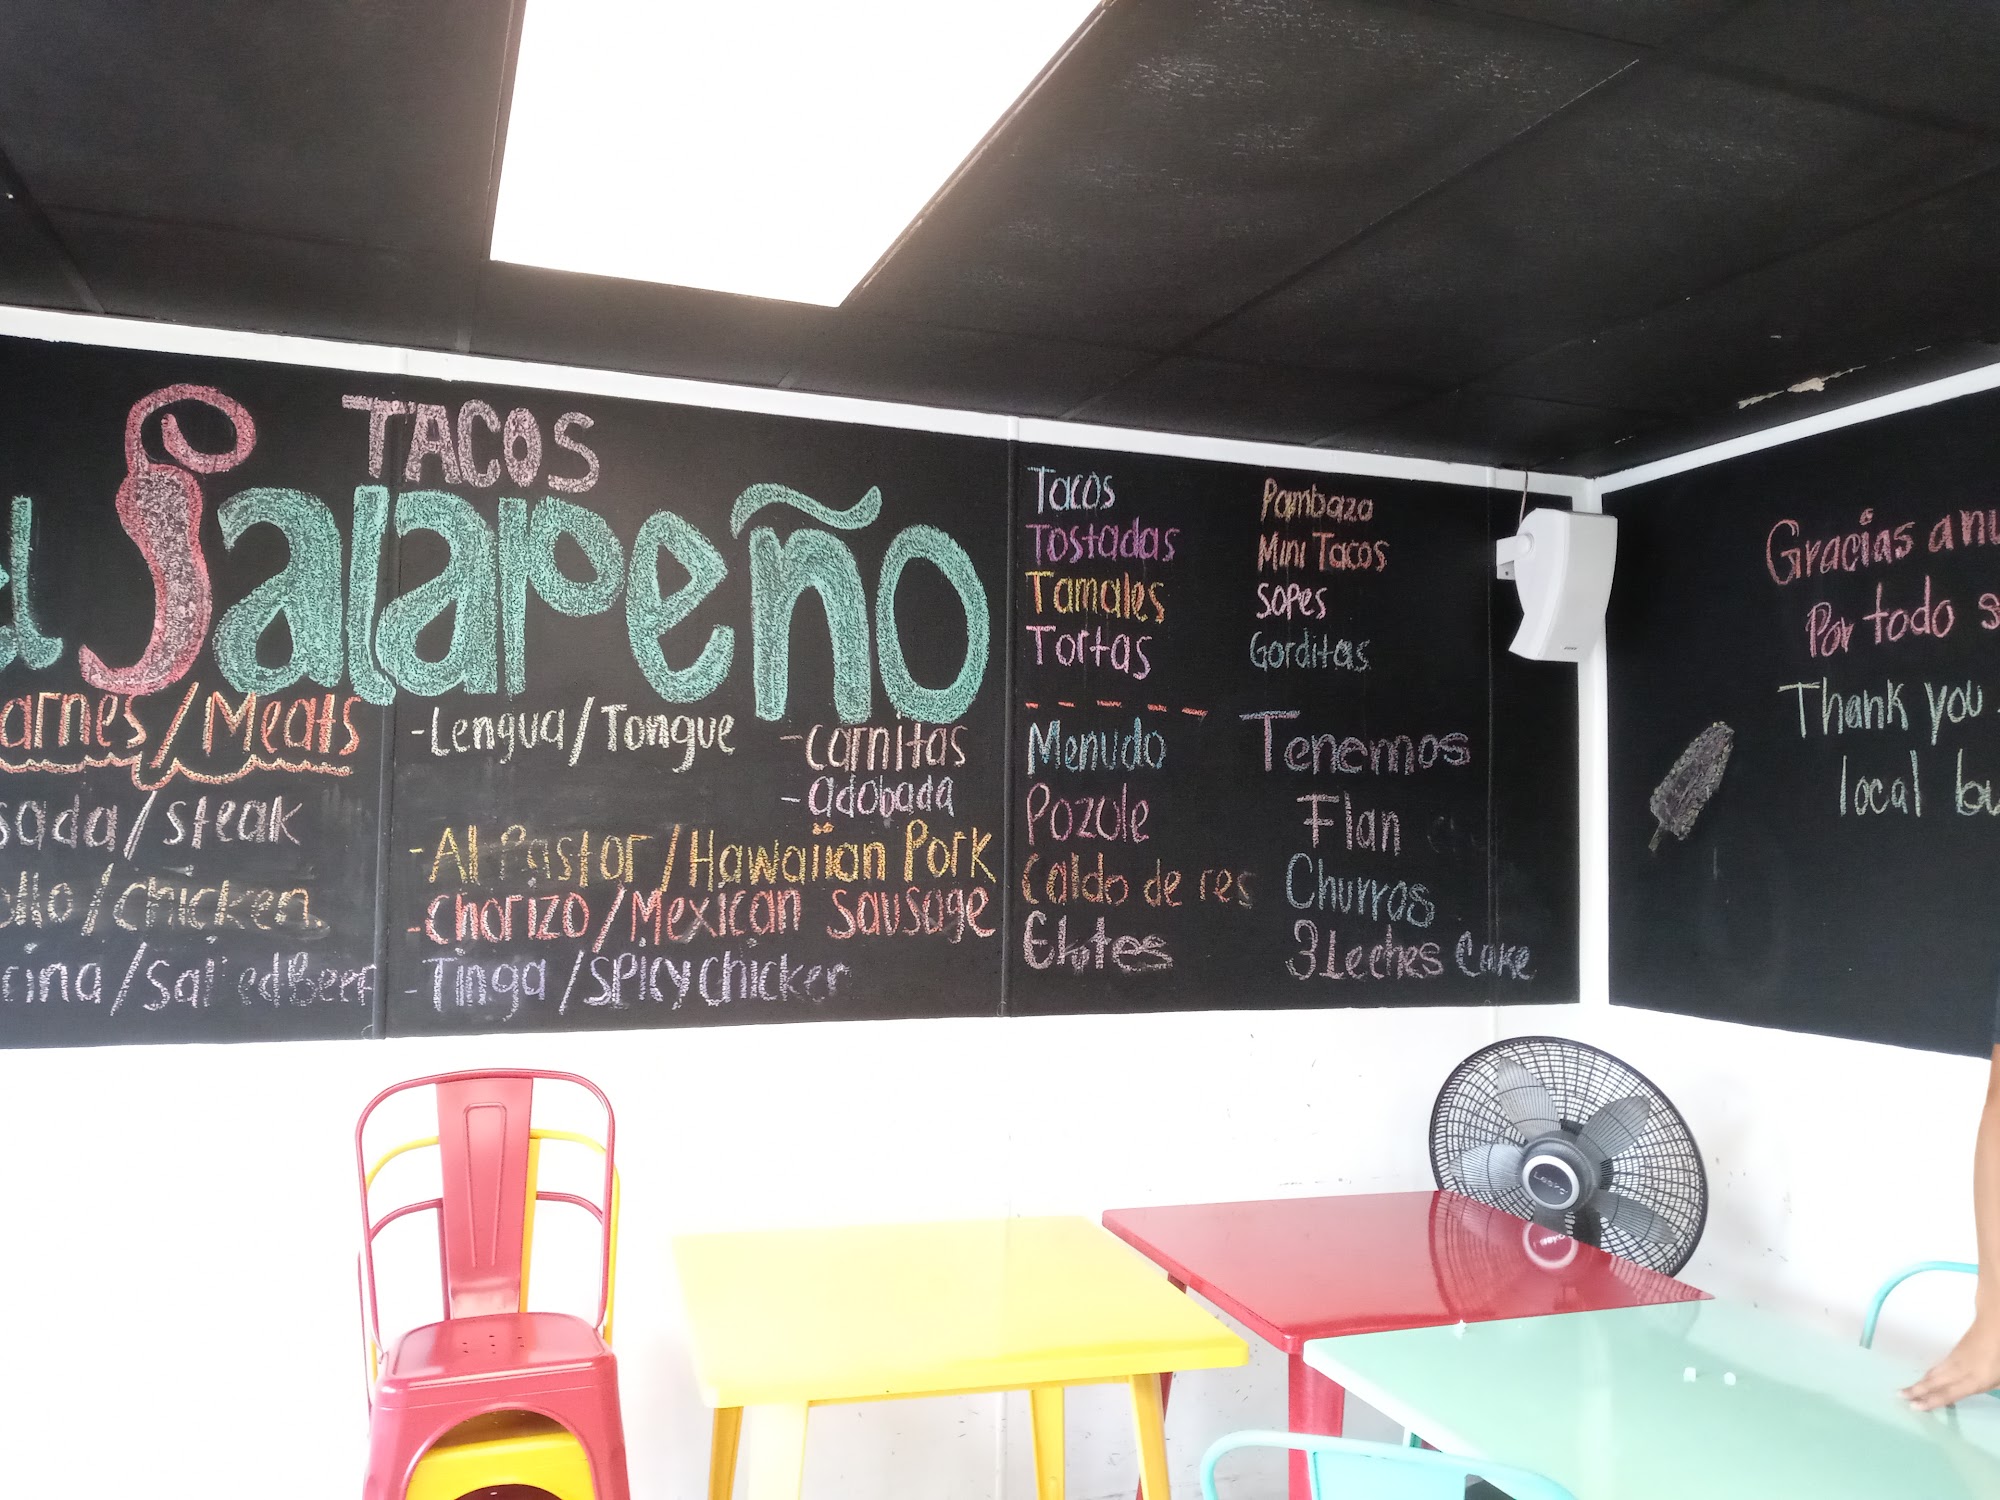 TACOS
el Jalapeño
arnes/Meats
sada/steak
ollo/chicken
cina/Salted Beef
-Lengua/Tongue
-carnitas
-adobada
-Al Pastor/Hawaiian Pork
-chorizo/Mexican sausage
-Tinga/spicy chicken
Tacos
Tostadas
Tamales
Tortas
Menudo
Pozole
Caldo de res
Elotes
Pambazo
Mini Tacos
Sopes
Gorditas
Tenemos
Flan
Churros
3 Leches Cake
Gracias a nu
Por todo s
Thank you
local bu
Lasko